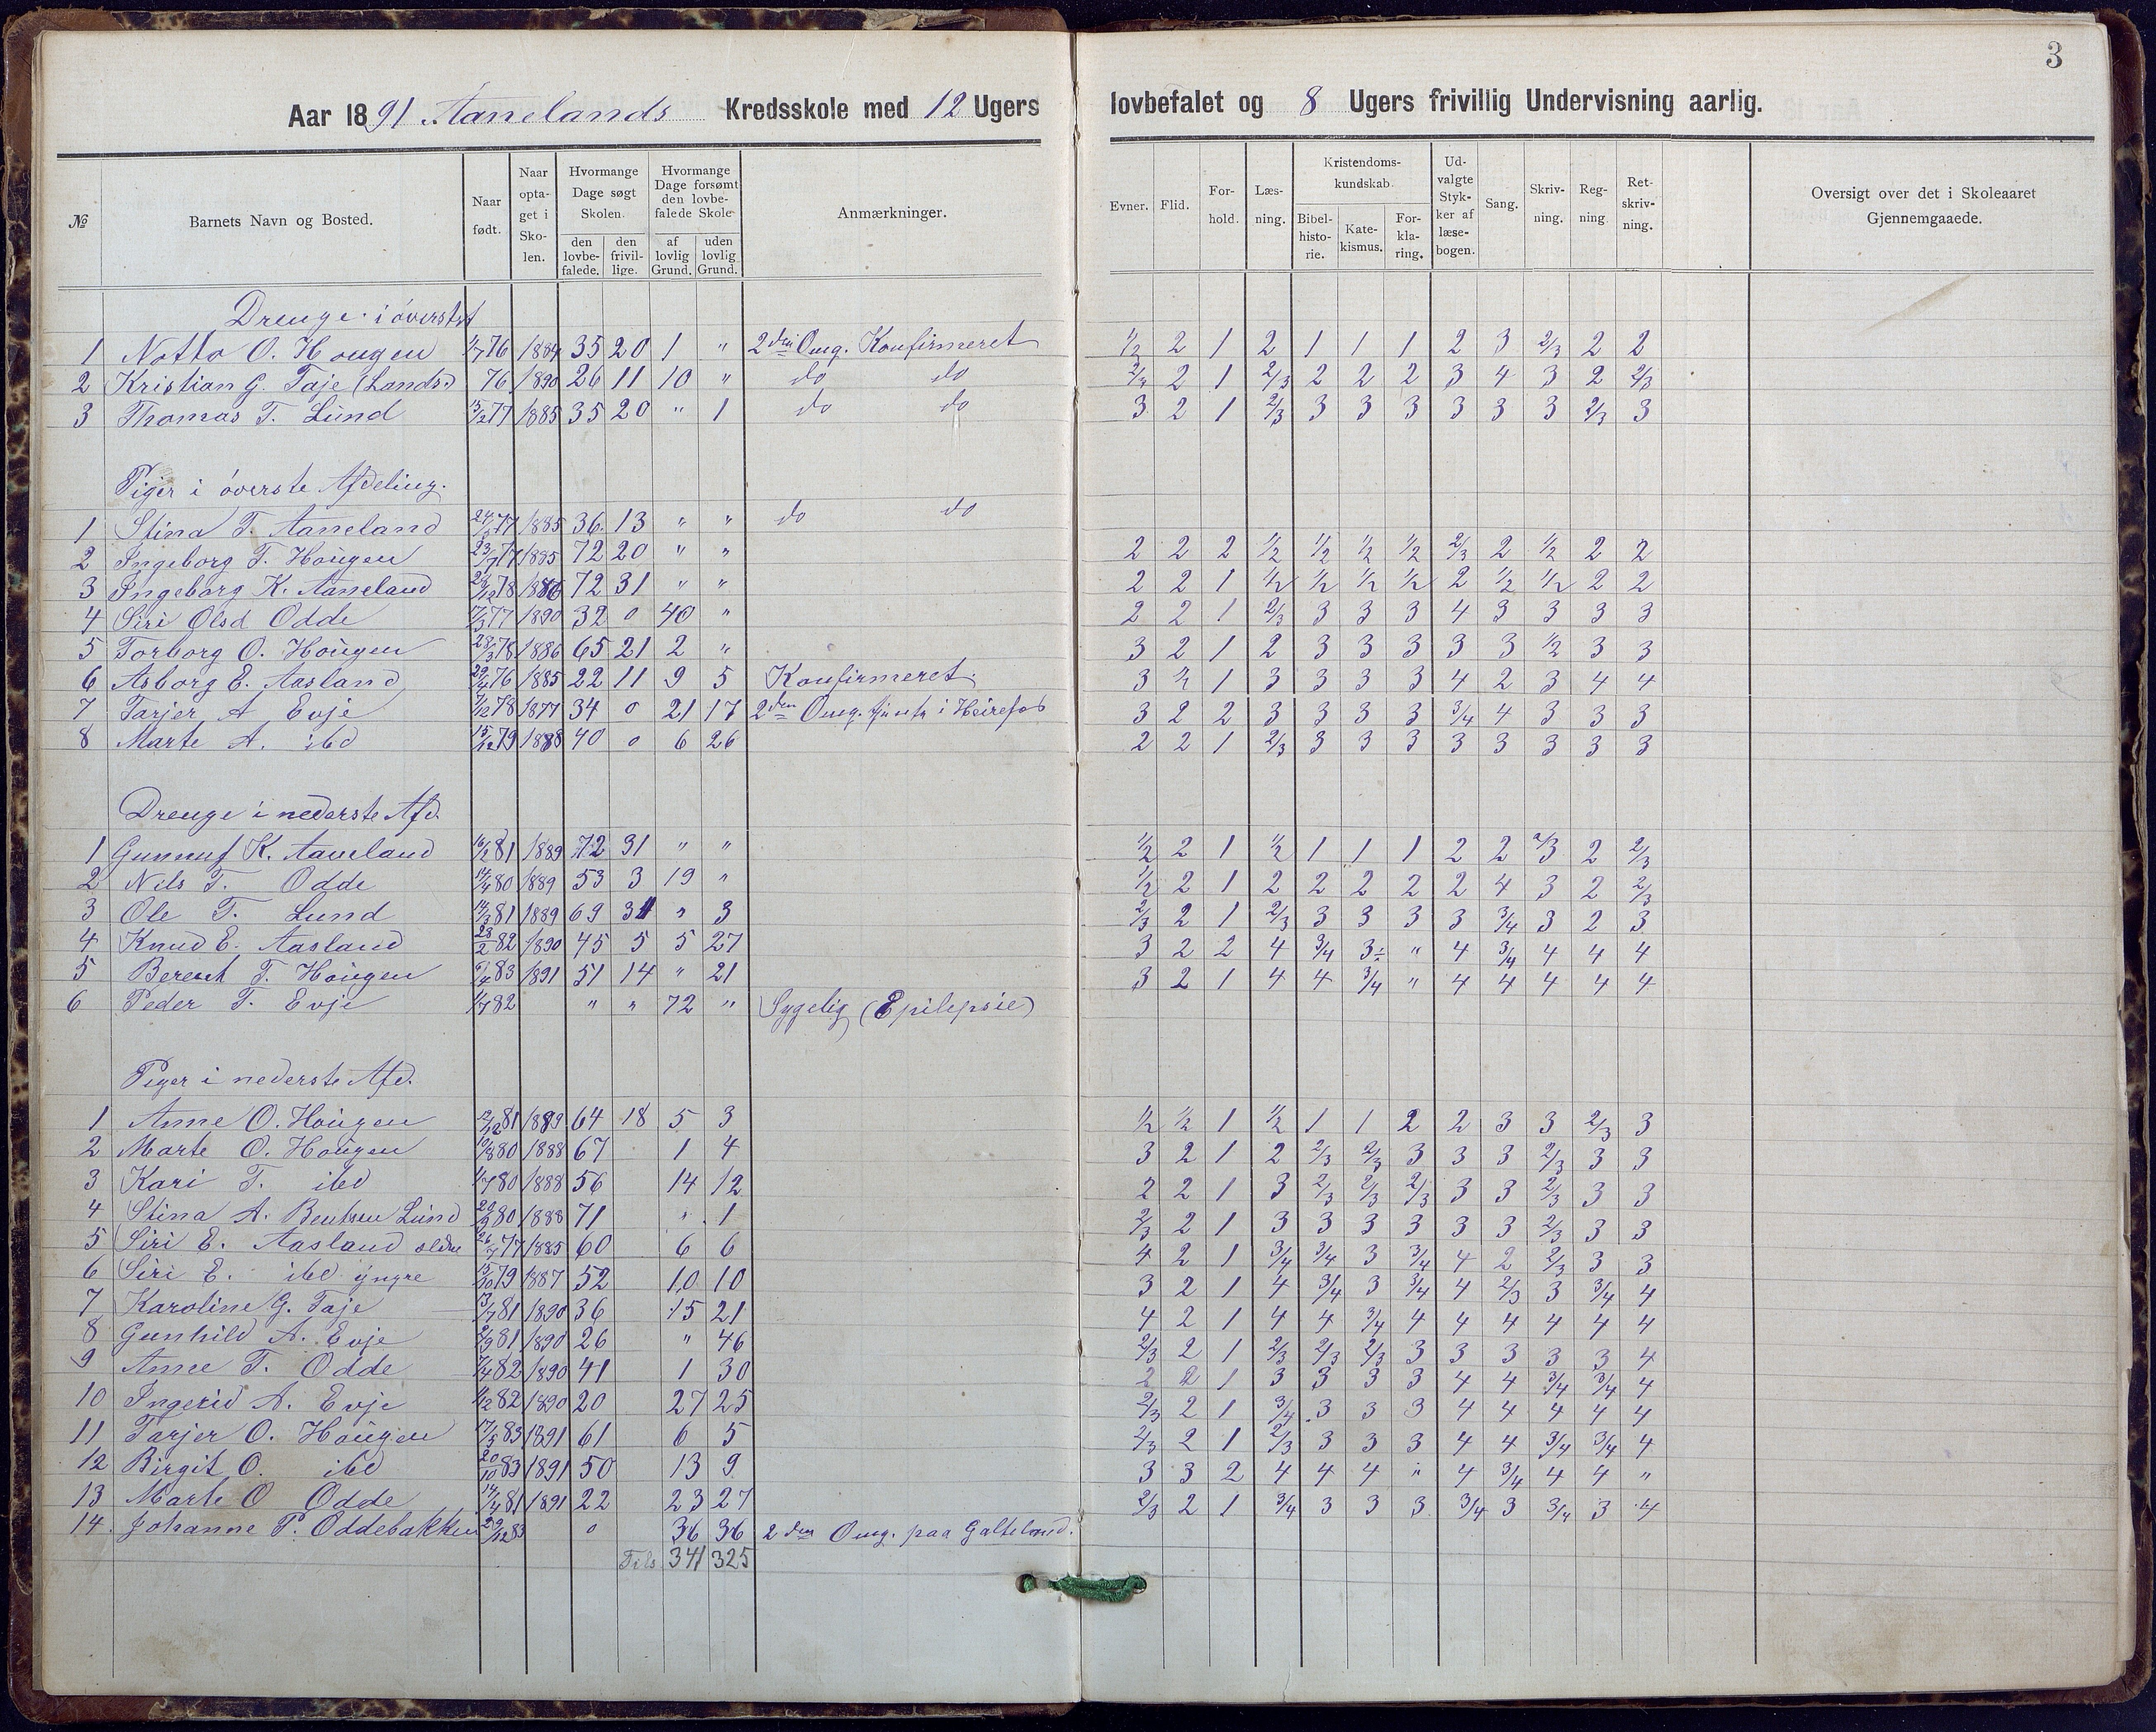 3
Aar 1891 Aanelands Kredsskole med 12 Ugers lovbefalet og 8 Ugers frivillig Undervisning aarlig.
№ Barnets Navn og Bosted. Naar født. Naar optaget i Skolen. Hvormange Dage søgt Skolen. den lovbefalede. den frivillige. Hvormange Dage forsømt den lovbefalede Skole af lovlig Grund. uden lovlig Grund. Anmærkninger. Evner. Flid. Forhold. Læsning. Kristendomskundskab. Bibelhistorie. Katekismus. Forklaring. Udvalgte Stykker af læsebogen. Sang. Skrivning. Regning. Retskrivning. Oversigt over det i Skoleaaret Gjennemgaaede.
Drenge i øverste
1 Notto O. Hougen 1/7 76 1884 35 20 1 " 2den Omg. Konfirmeret 1/2 2 1 2 1 1 1 2 3 2/3 2 2
2 Kristian G. Taje (Lands.) 76 1890 26 11 10 " do do 2/3 2 1 2/3 2 2 2 3 4 3 2 2/3
3 Thomas T. Lund 15/2 77 1885 35 20 " 1 do do 3 2 1 2/3 3 3 3 3 3 3 2/3 3
Piger i øverste Afdeling.
1 Stina T. Aaneland 24/5 77 1885 36 13 " " do do
2 Ingeborg T. Hougen 23/7 77 1885 72 20 " " 2 2 2 1/2 1/2 1/2 1/2 2/3 2 1/2 2 2
3 Ingeborg K. Aaneland 23/12 78 1886 72 31 " " 2 2 1 1/2 1/2 1/2 1/2 2 1/2 1/2 2 2
4 Siri Olsd Odde 17/3 77 1890 32 0 40 " 2 2 1 2/3 3 3 3 4 3 3 3 3
5 Torborg O. Hougen 28/3 78 1886 65 21 2 " 3 2 1 2 3 3 3 3 3 1/2 3 3
6 Asborg E. Aasland 29/4 76 1885 22 11 9 5 Konfirmeret. 3 1/2 1 3 3 3 3 4 2 3 4 4
7 Tarjer A Evje 7/12 78 1877 34 0 21 17 2den Omg. i Heirefos 3 2 2 3 3 3 3 3/4 4 3 3 3
8 Marte A. ibd 15/12 79 1888 40 0 6 26 2 2 1 2/3 3 3 3 3 3 3 3 3
Drenge i nederste Afd.
1 Gunnuf K. Aaneland 16/2 81 1889 72 31 " " 1/2 2 1 1/2 1 1 1 2 2 2/3 2 2/3
2 Nils T. Odde 14/4 80 1889 53 3 19 " 1/2 2 1 2 2 2 2 2 4 3 2 2/3
3 Ole T. Lund 14/3 81 1889 69 31 " 3 2/3 2 1 2/3 3 3 3 3 3/4 3 2 3
4 Knud E. Aasland 28/2 82 1890 45 5 5 27 3 2 2 4 3/4 3÷ " 4 3/4 4 4 4
5 Berent T. Hougen 6/4 83 1891 51 14 " 21 3 2 1 4 4 3/4 " 4 4 4 4 4
6 Peder T. Evje 1/7 82 " " 72 " Sygelig (Epilepsie)
Piger i nederste Afd.
1 Anne O. Hougen 12/12 81 1889 64 18 5 3 1/2 1/2 1 1/2 1 1 2 2 3 3 2/3 3
2 Marte O. Hougen 10/8 80 1888 67 1 4 3 2 1 2 2/3 2/3 3 3 3 2/3 3 3
3 Kari T. ibd 1/7 80 1888 56 14 12 2 2 1 3 2/3 2/3 2/3 3 3 2/3 3 3
4 Stina A. Bentsen Lund 20/9 80 1888 71 " 1 2/3 2 1 3 3 3 3 3 3 2/3 3 3
5 Siri E. Aasland eldre 26/7 77 1885 60 6 6 4 2 1 3/4 3/4 3 3/4 4 2 2/3 3 3
6 Siri E. ibd yngre 15/10 79 1887 52 10 10 3 2 1 4 3/4 3 3/4 4 2/3 3 3/4 4
7 Karoline G. Taje 13/7 81 1890 36 15 21 4 2 1 4 4 3/4 4 4 4 4 4 4
8 Gunhild A. Evje 2/9 81 1890 26 " 46 2/3 2 1 2/3 2/3 2/3 3 3 3 3 3 4
9 Anne T. Odde 7/4 82 1890 41 1 30 2 2 1 3 3 3 3 4 4 3/4 3/4 4
10 Ingerid A. Evje 1/12 82 1890 20 27 25 2/3 2 1 3/4 3 3 3 4 4 4 4 4
11 Tarjer O. Hougen 17/5 83 1891 61 6 5 2/3 2 1 2/3 3 3 3 4 4 3/4 3/4 4
12 Birgit O. ibd 20/10 83 1891 50 13 9 3 3 2 4 4 4 " 4 3/4 4 4 "
13 Marte O Odde 14/4 81 1891 22 23 27 2/3 2 1 3/4 3 3 3 3/4 3 3/4 3 4
14. Johanne P. Oddebakken 29/12 83 0 36 36 2den Omg. paa Galteland.
Tils. 341 325